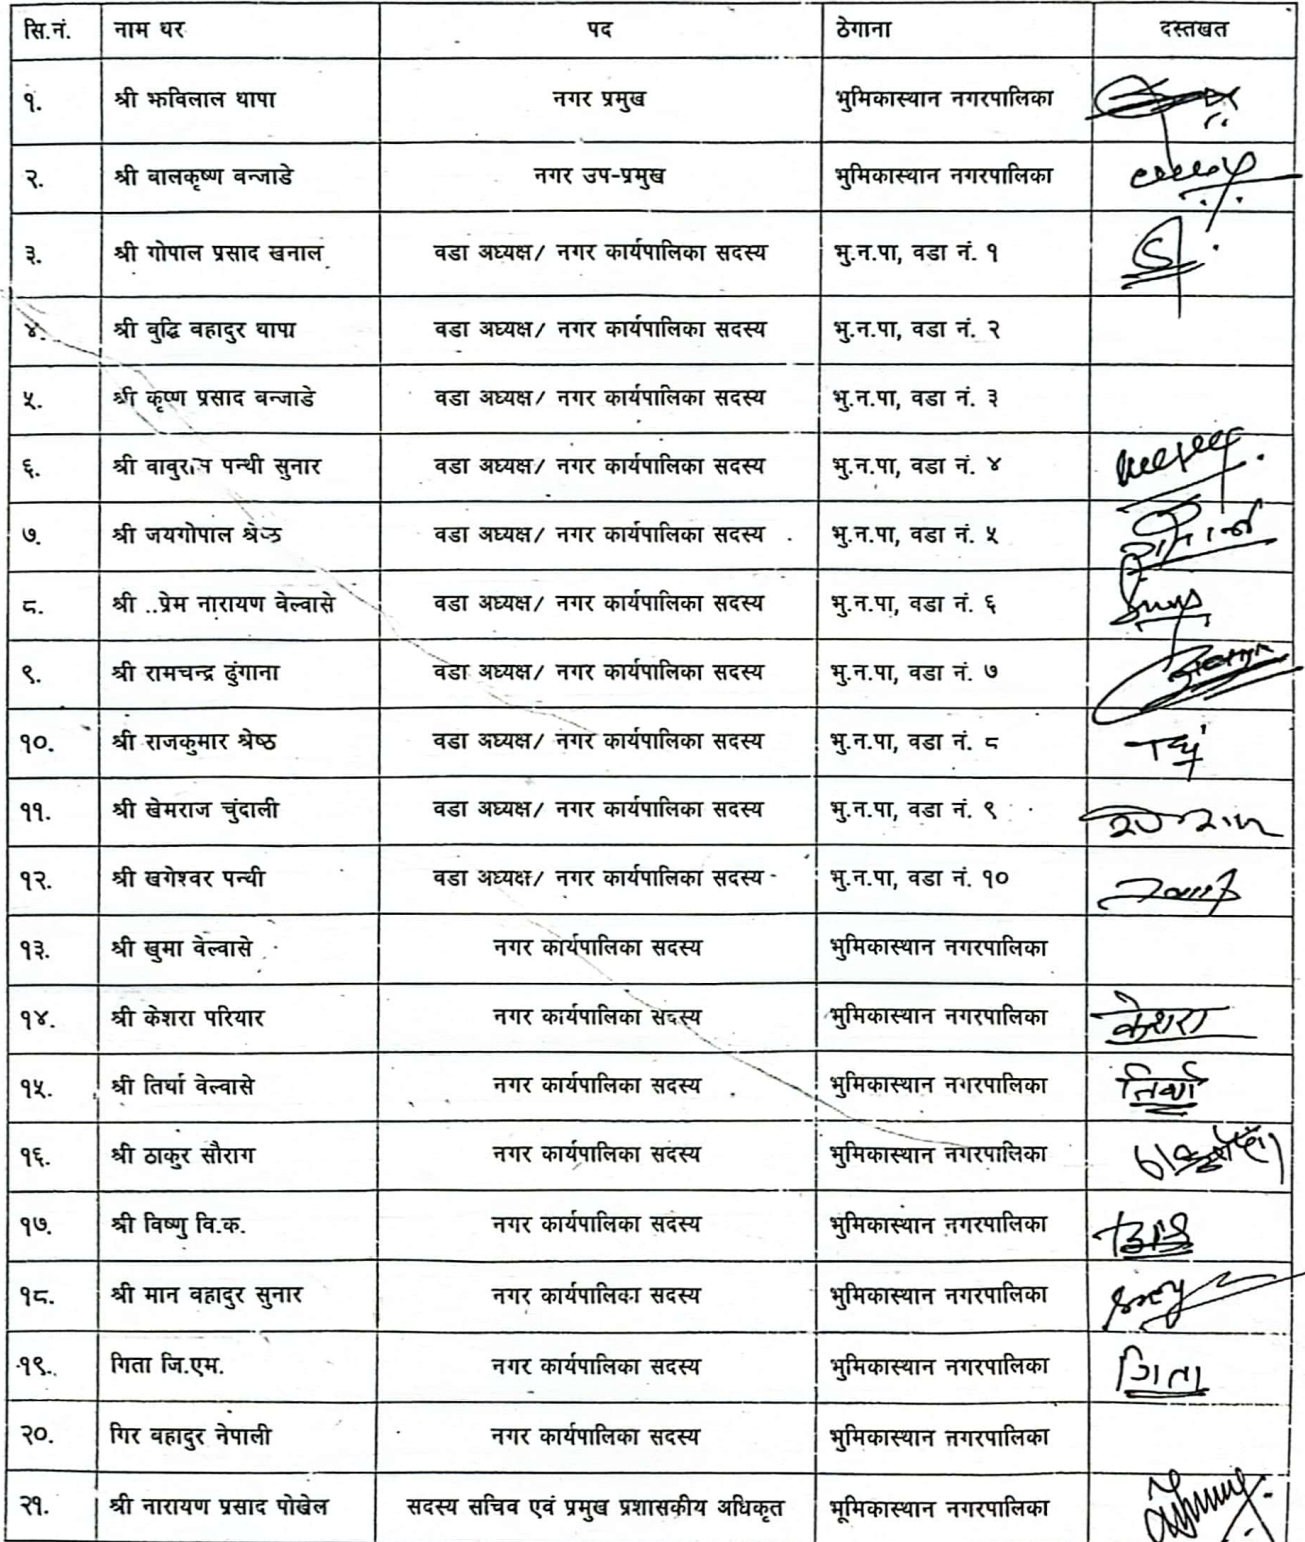 सि.नं. नाम थर पद ठेगाना दस्तखत
१. श्री झविलाल थापा नगर प्रमुख भुमिकास्थान नगरपालिका
२. श्री वालकृष्ण वन्जाडे नगर उप-प्रमुख भुमिकास्थान नगरपालिका
३. श्री गोपाल प्रसाद खनाल वडा अध्यक्ष/ नगर कार्यपालिका सदस्य भु.न.पा, वडा नं. १
४. श्री वुद्धि वहादुर थापा वडा अध्यक्ष/ नगर कार्यपालिका सदस्य भु.न.पा, वडा नं. २
५. श्री कृष्ण प्रसाद बन्जाडे वडा अध्यक्ष/ नगर कार्यपालिका सदस्य भु.न.पा, वडा नं. ३
६. श्री वावुराम पन्थी सुनार वडा अध्यक्ष/ नगर कार्यपालिका सदस्य भु.न.पा, वडा नं. ४
७. श्री जयगोपाल श्रेष्ठ वडा अध्यक्ष/ नगर कार्यपालिका सदस्य भु.न.पा, वडा नं. ५
८. श्री ..प्रेम नारायण वेल्वासे वडा अध्यक्ष/ नगर कार्यपालिका सदस्य भु.न.पा, वडा नं. ६
९. श्री रामचन्द्र ढुंगाना वडा अध्यक्ष/ नगर कार्यपालिका सदस्य भु.न.पा, वडा नं. ७
१०. श्री राजकुमार श्रेष्ठ वडा अध्यक्ष/ नगर कार्यपालिका सदस्य भु.न.पा, वडा नं. ८
११. श्री खेमराज चुंदाली वडा अध्यक्ष/ नगर कार्यपालिका सदस्य भु.न.पा, वडा नं. ९
१२. श्री खगेश्वर पन्थी वडा अध्यक्ष/ नगर कार्यपालिका सदस्य भु.न.पा, वडा नं. १०
१३. श्री खुमा वेल्वासे नगर कार्यपालिका सदस्य भुमिकास्थान नगरपालिका
१४. श्री केशरा परियार नगर कार्यपालिका सदस्य भुमिकास्थान नगरपालिका केशरा
१५. श्री तिर्था वेल्वासे नगर कार्यपालिका सदस्य भुमिकास्थान नगरपालिका तिर्था
१६. श्री ठाकुर सौराग नगर कार्यपालिका सदस्य भुमिकास्थान नगरपालिका
१७. श्री विष्णु वि.क. नगर कार्यपालिका सदस्य भुमिकास्थान नगरपालिका
१८. श्री मान वहादुर सुनार नगर कार्यपालिका सदस्य भुमिकास्थान नगरपालिका
१९. गिता जि.एम. नगर कार्यपालिका सदस्य भुमिकास्थान नगरपालिका गिता
२०. गिर वहादुर नेपाली नगर कार्यपालिका सदस्य भुमिकास्थान नगरपालिका
२१. श्री नारायण प्रसाद पोखेल सदस्य सचिव एवं प्रमुख प्रशासकीय अधिकृत भूमिकास्थान नगरपालिका